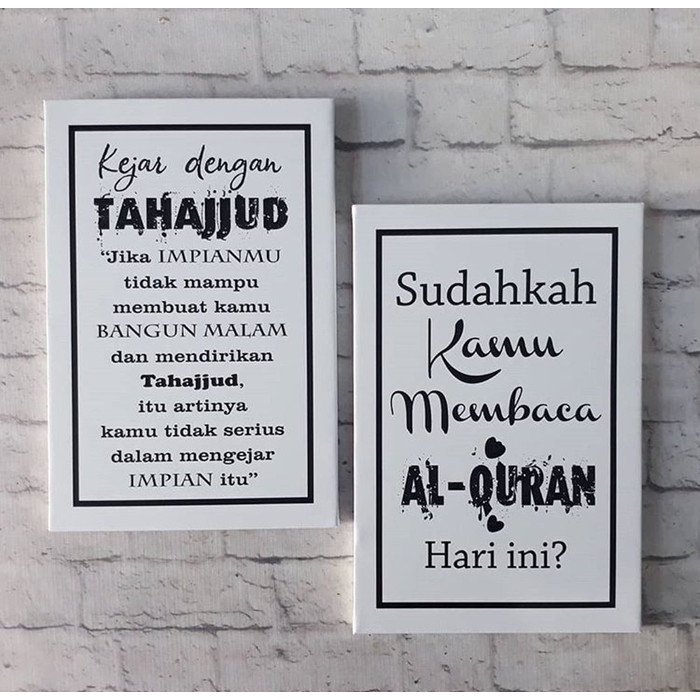 Kejar dengan
TAHAJJUD
“Jika IMPIANMU
tidak mampu
membuat kamu
BANGUN MALAM
dan mendirikan
Tahajjud,
itu artinya
kamu tidak serius
dalam mengejar
IMPIAN itu”
Sudahkah
Kamu
Membaca
AL-QURAN
Hari ini?